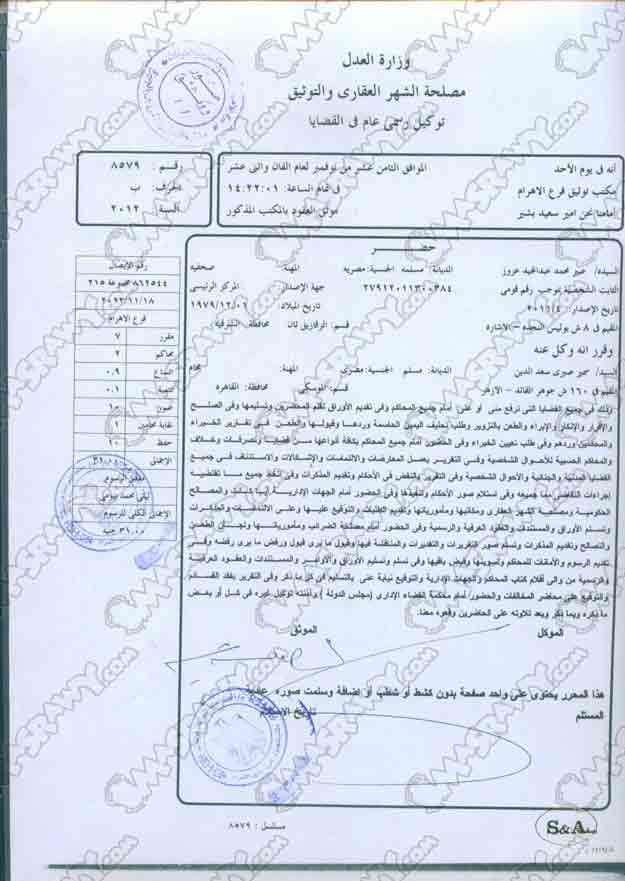 وزارة العدل
مصلحة الشهر العقارى والتوثيق
توكيل رسمى عام فى القضايا
أنه فى يوم الأحد الموافق الثامن عشر من نوفمبر لعام الفان واثنى عشر
بمكتب توثيق فرع الاهرام فى تمام الساعة: ١٤:٢٢:٠١
أمامنا نحن امير سعيد بشير موثق العقود بالمكتب المذكور
رقم: ٨٥٧٩
حرف: ب
السنة: ٢٠١٢
حضر
السيدة/ عبير محمد عبدالمجيد عزوز الديانة: مسلمه الجنسية: مصريه المهنة: صحفيه
الثابت الشخصية بموجب رقم قومى ٢٧٩١٢٠١١٣٠٠٣٨٤ جهة الإصدار: المركز الرئيسى
تاريخ الإصدار: ٢٠١١/٤ تاريخ الميلاد: ١٩٧٩/١٢/٠١
المقيم فى ٨ ش بوليس النجده - الاشاره قسم: الزقازيق ثان محافظة: الشرقيه
وقرر انه وكل عنه
السيد/ سمير صبرى سعد الدين الديانة: مسلم الجنسية: مصرى المهنة: محام
المقيم فى ١٦٠ ش جوهر القائد - الازهر قسم: الموسكى محافظة: القاهره
وذلك فى جميع القضايا التى ترفع منى أو على أمام جميع المحاكم وفى تقديم الأوراق لقلم المحضرين وتسليمها وفى الصلح
والإقرار والإنكار والإبراء والطعن بالتزوير وطلب تحليف اليمين الحاسمة وردها وقبولها والطعن فى تقارير الخبراء
والمحكمين وردهم وفى طلب تعيين الخبراء وفى الحضور أمام جميع المحاكم بكافة أنواعها من قضايا وتصرفات وخلاف
والمحاكم الحسبية للأحوال الشخصية وفى التقرير بعمل المعارضات والالتماسات والإشكالات والاستئناف فى جميع
القضايا المدنية والجنائية والأحوال الشخصية وفى التقرير بالنقض فى الأحكام وتقديم المذكرات وفى اتخاذ جميع ما تقتضيه
إجراءات التقاضى بما جميعه وفى استلام صور الأحكام وتنفيذها وفى الحضور أمام الجهات الإدارية والمصالح
الحكومية ومصلحة الشهر العقارى ومكاتبها ومأمورياتها وتقديم الطلبات والتوقيع عليها وعلى والمذكرات
وتسلم الأوراق والمستندات والعقود العرفية والرسمية وفى الحضور أمام مصلحة الضرائب ومأمورياتها ولجان الطعن
والتصالح وتقديم المذكرات وتسلم صور التقريرات والتقديرات والمناقشة فيها وقبول ما يرى قبول ورفض ما يرى رفضه وفى
تقديم الرسوم والأمانات للمحاكم وتسويتها وقبض باقيها وفى تسلم وتسليم الأوراق والمستندات والعقود العرفية
والرسمية من والى أقلام كتاب المحاكم والجهات الإدارية والتوقيع نيابة عنى بالتسليم فى كل ما ذكر وفى التقرير بفقد
والتوقيع على محضر المخالفات والحضور أمام محكمة القضاء الإدارى (مجلس الدولة) وأذنته توكيل غيره فى كل أو بعض
ما ذكره وبما ذكر وبعد تلاوته على الحاضرين وقعوه معنا.
الموكل الموثق
هذا المحرر يحتوى على واحد صفحة بدون كشط أو شطب أو إضافة وسلمت صوره
المستلم تاريخ الاستلام
رقم الإيصال
٨٦٢٥٤٤ مجموعة ٢١٥
٢٠١٢/١١/١٨
فرع الاهرام
مقرر ٧
محاكم ٢
٠.٩
٠.١
صون ١٠
نقابة محامين ١
حفظ ١٠
الإجمالى ٣١
الإجمالى الكلى للرسوم
٣١.٠٠ جنيه
مسلسل: ٨٥٧٩
S&A
MASRAWY.com